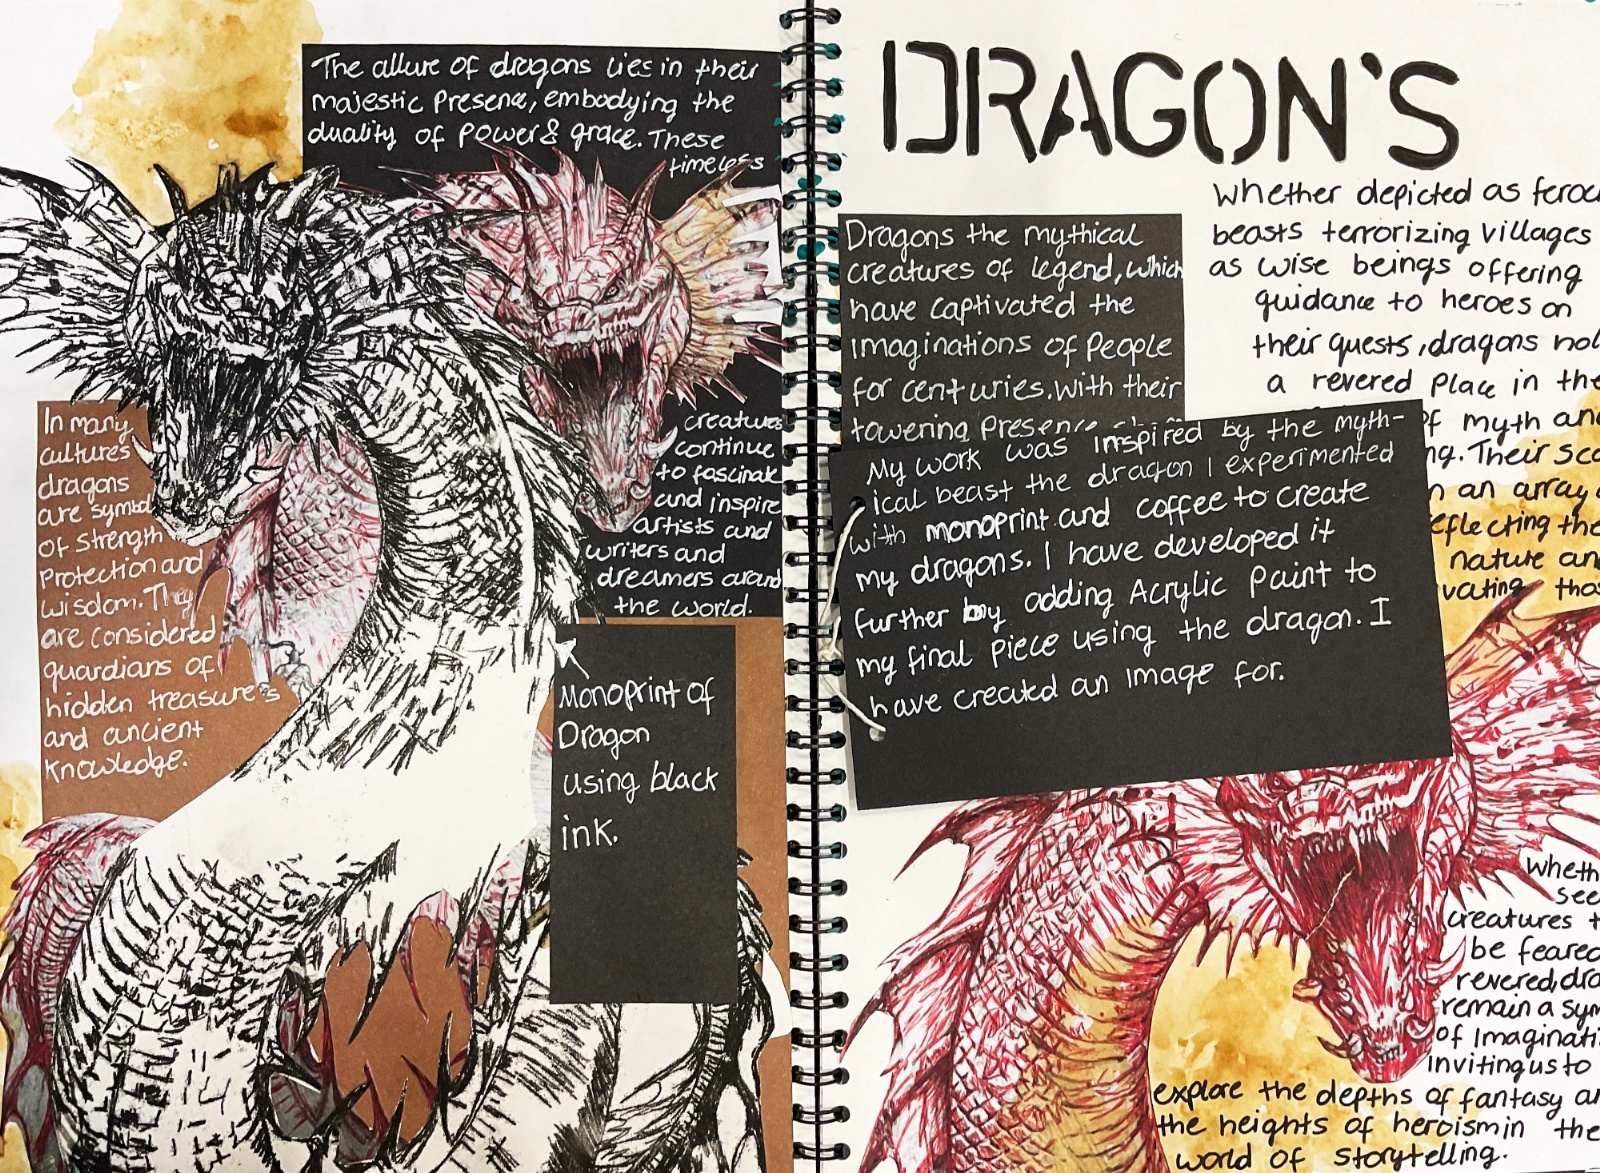 The allure of dragons lies in their
majestic Presence, embodying the
duality of Power & grace. These
timeless
creatures
continue
to fascinate
and inspire
artists and
writers and
dreamers around
the world.
In many
cultures
dragons
are symbols
of Strength
Protection and
wisdom. They
are considered
guardians of
hidden treasure's
and ancient
knowledge.
Monoprint of
Dragon
using black
ink.
DRAGON'S
Dragons the mythical
creatures of legend, which
have captivated the
imaginations of People
for centuries. With their
towering Presence
My work was inspired by the myth-
ical beast the dragon I experimented
with monoprint and coffee to create
my dragons. I have developed it
further by adding Acrylic Paint to
my final Piece using the dragon. I
have created an image for.
Whether depicted as feroc
beasts terrorizing villages
as wise beings offering
guidance to heroes on
their quests, dragons hol
a revered Place in the
of myth and
ng. Their sca
n an array
eflecting the
nature an
vating thos
Wheth
see
creatures t
be feared
revered, dra
remain a sym
of Imaginati
inviting us to
explore the depths of fantasy an
the heights of heroism in the
world of storytelling.